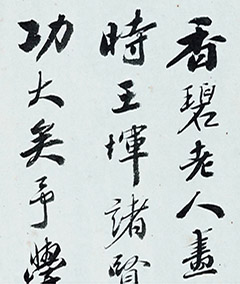 香碧老人畫
時王惲諸賢
功大矣予學